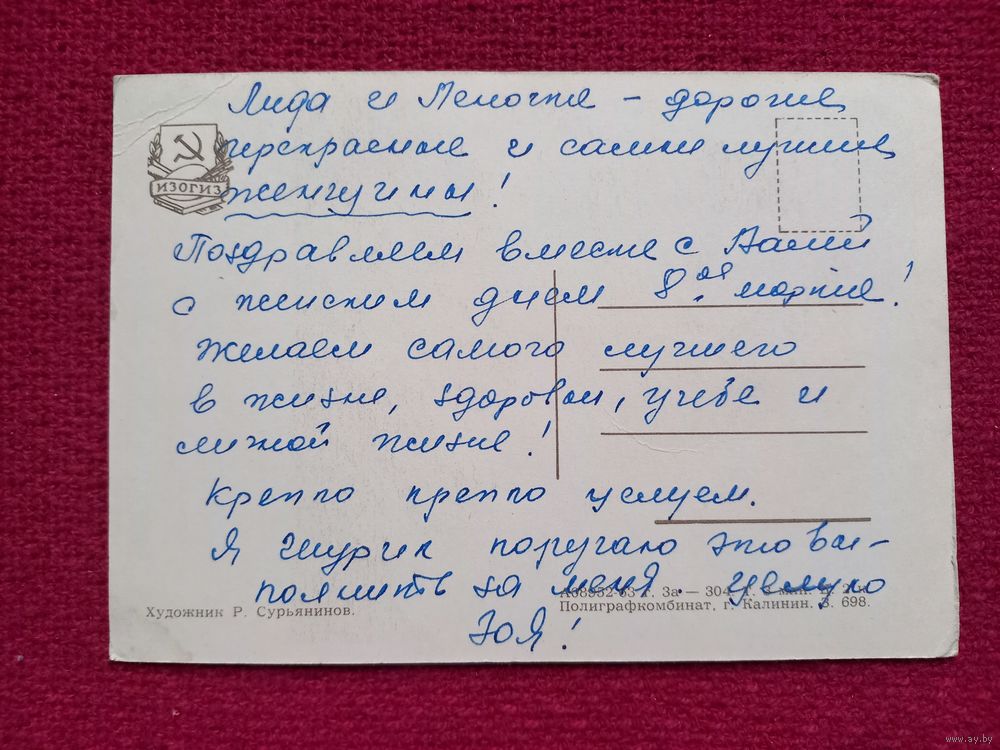 Лида и Леночка – дорогие,
прекрасные и самые лучшие
женщины!
ИЗОГИЗ
Поздравляем вместе с Валей
с женским днем 8ое марта!
Желаем самого лучшего
в жизни, здоровья, учебе и
личной жизни!
Крепко крепко целуем.
Я Шурик поручаю это вы-
полнить за меня. Целую
Зоя!
Художник Р. Сурьянинов.
Полиграфкомбинат, г. Калинин. З. 698.
www.ay.by